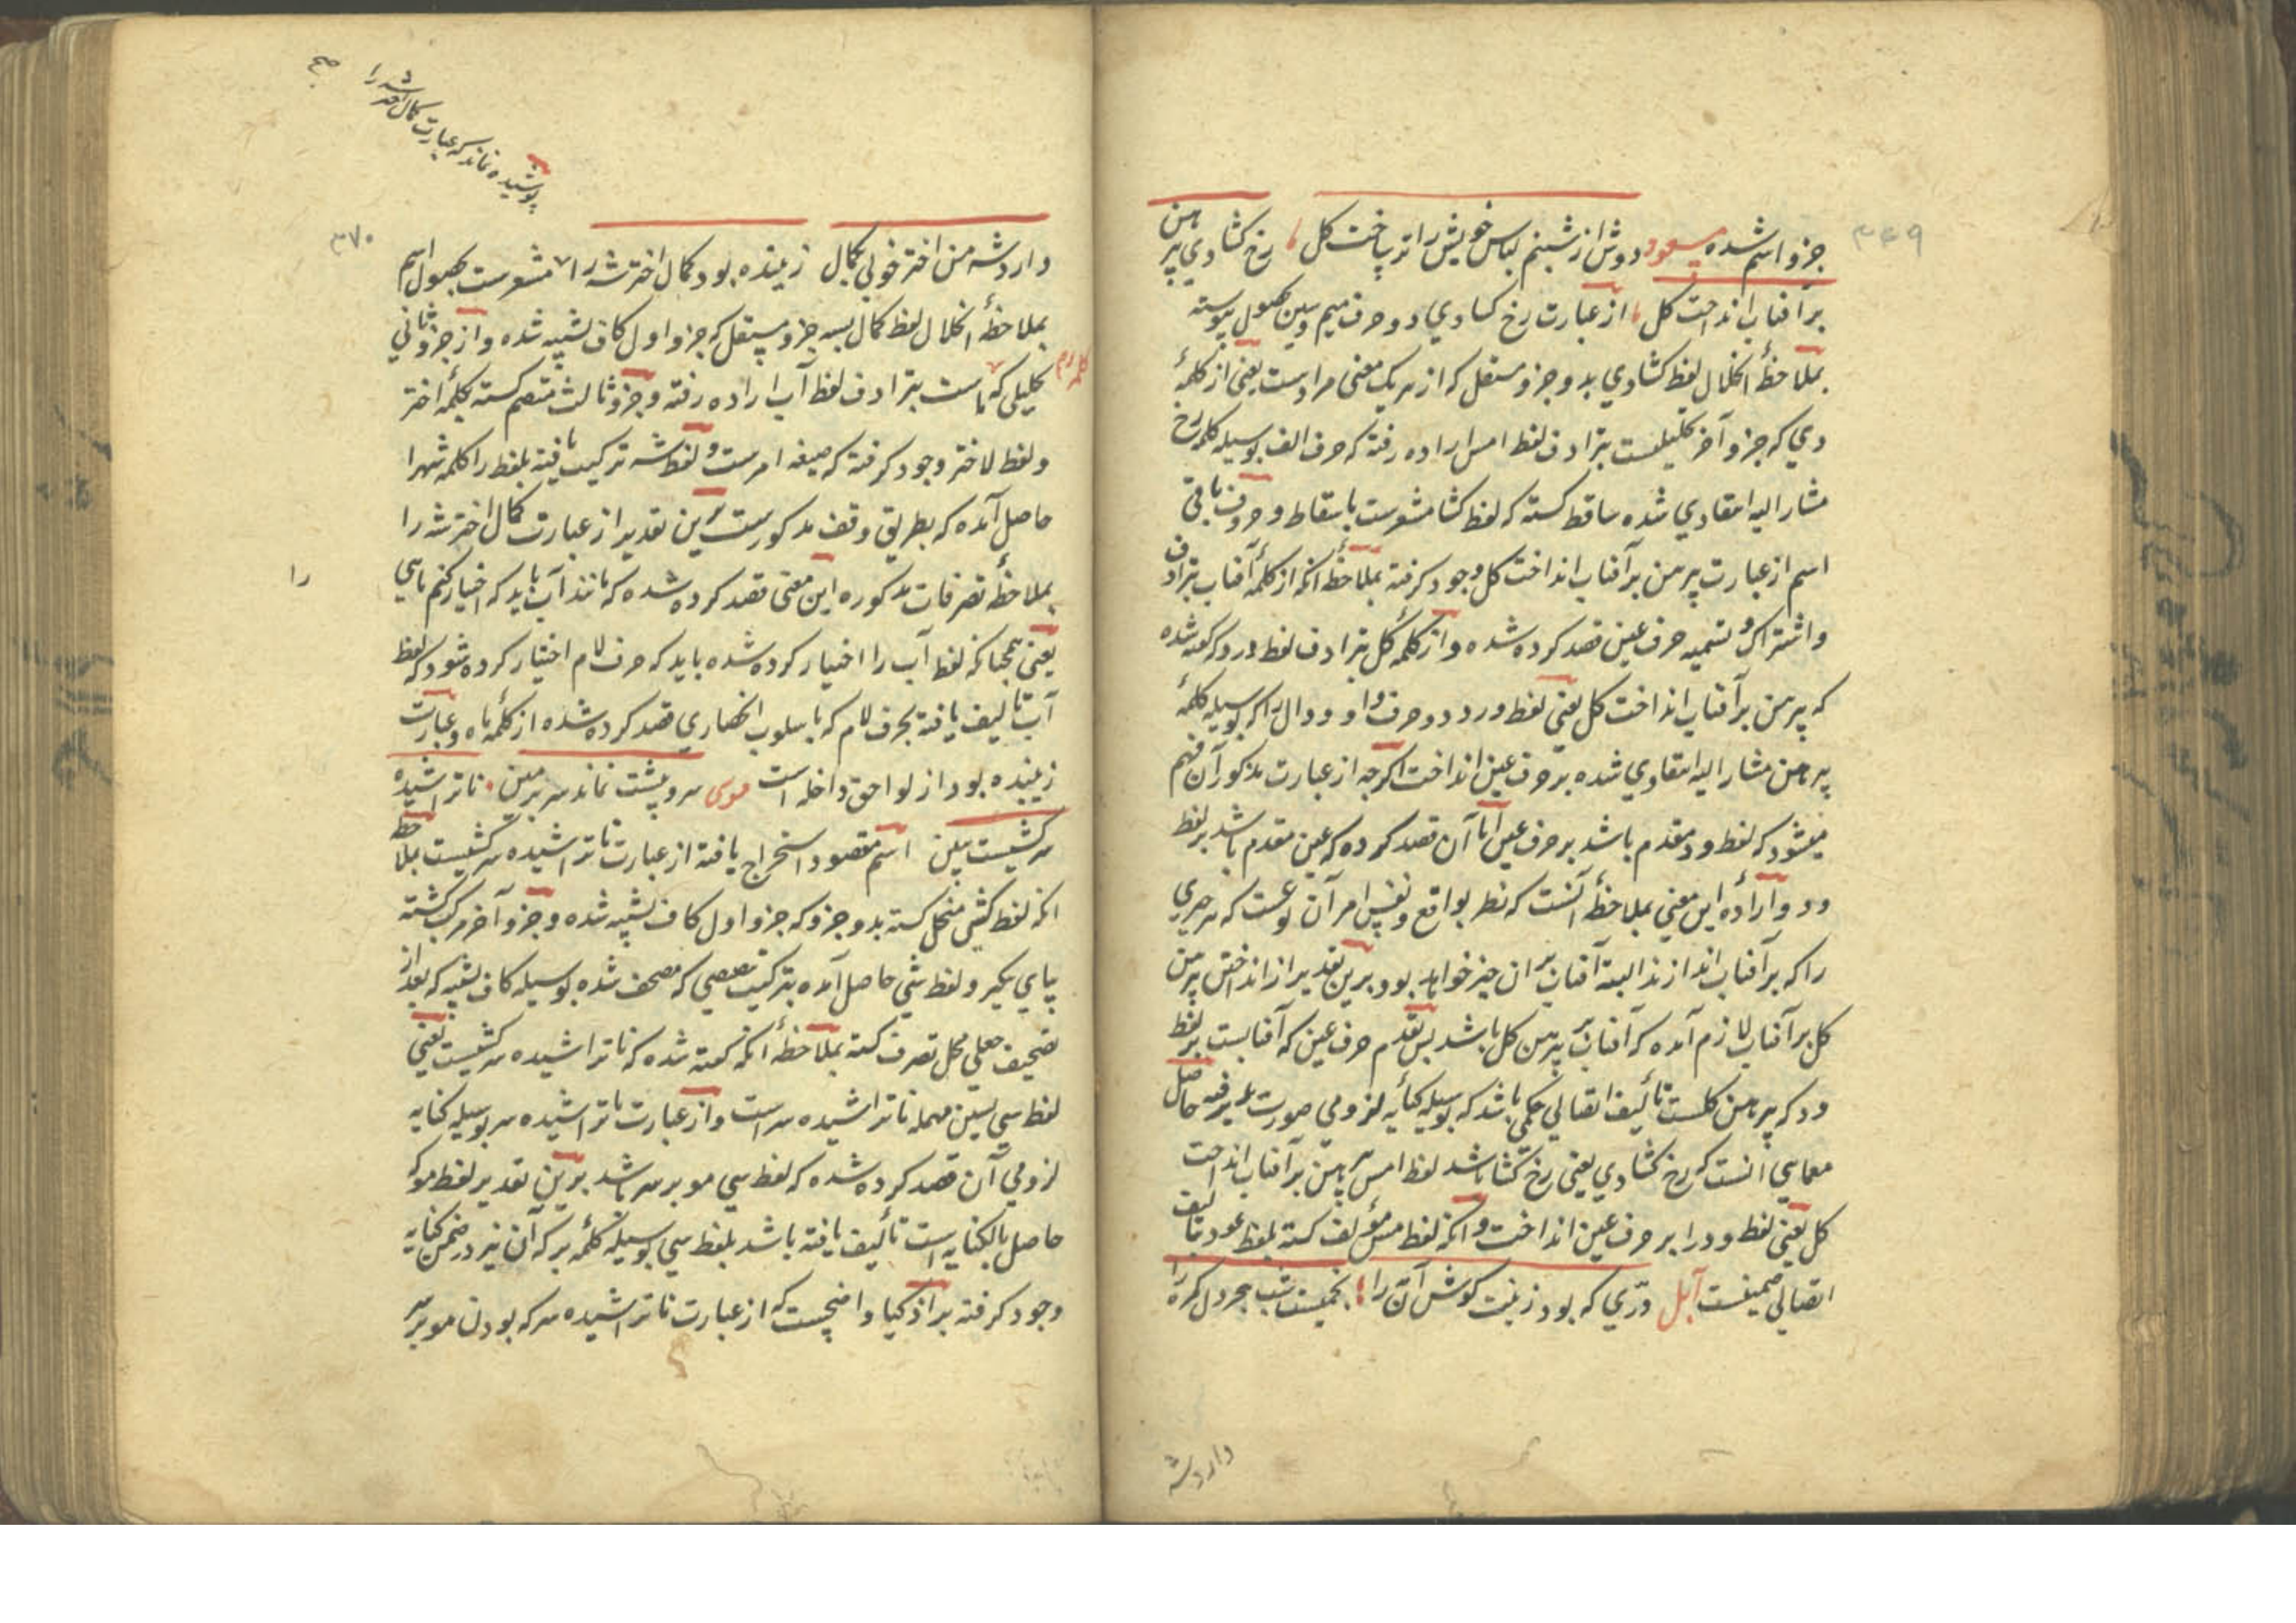 ۳۶۹
جزو اسم شده مسعود دوش از شبنم لباس خویش را تر یافت کل رخ کشادی پیرهن
بر آفتاب انداخت کل از عبارت رخ کشادی دو حرف میم و سین بحصول پیوسته
بملاحظهٔ انحلال لفظ کشادی بدو جزو مستقل که از هر یک معنی مرادست یعنی از کلمهٔ
دی که جزو آخر تحلیلیست بترادف لفظ امس اراده رفته که حرف الف بوسیله کلمه رخ
مشار الیه انتقادی شده ساقط کسته که لفظ کشا مشعرست باسقاط و حروف باقی
اسم از عبارت پیرهن بر آفتاب انداخت کل وجود کرفته بملاحظهٔ انکه از کلمهٔ آفتاب بترادف
و اشتراک و تسمیه حرف عین قصد کرده شده و از کلمهٔ کل بترادف لفظ ورد که کفته شده
که پیرهن بر آفتاب انداخت کل یعنی لفظ ورد دو حرف واو و دال را که بوسیله کلمهٔ
پیرهن مشار الیه انتقادی شده بر حرف عین انداخت اکرچه از عبارت مذکور آن فهم
میشود که لفظ ود مقدم باشد بر حرف عین اما آن قصد کرده که عین مقدم باشد بر لفظ
ود و ارادهٔ این معنی بملاحظهٔ آنست که نظر بواقع و نفس امر آن نوعست که هر چیزی
را که بر آفتاب اندازند البته آفتاب بر آن چیز خواهد بود برین تقدیر از انداختن پیرهن
کل بر آفتاب لازم آمده که آفتاب بر پیرهن کل باشد پس تقدم حرف عین که آفتابست بر لفظ
ود که پیرهن کلست تألیف اتصالی حکمی باشد که بوسیله کنایه لزومی صورت پذیرفته حاصل
معمایی آنست که رخ کشادی یعنی رخ کشا باشد لفظ امس پیرهن بر آفتاب انداخت
کل یعنی لفظ ود را بر حرف عین انداخت و آنکه لفظ مس مؤلف کسته بلفظ عود بتالیف
اتصالی ضمنیست آبل درّی که بود زینت کوش آن را بخمیست شب هجر دل کمره را
وارد شه
۳۷۰
پوشیده نماند که عبارت کمال اختر شه را
صح
وارد شه من اختر خوبی بکمال زیبنده بود کمال اختر شه را مشعرست بحصول اسم
بملاحظهٔ انحلال لفظ کمال بسه جزو مستقل که جزو اول کاف تشبیه شده و از جزو ثانی
تحلیلی که ماست بترادف لفظ آب اراده رفته و جزو ثالث منضم کسته بکلمهٔ اختر
و لفظ لاختر وجود کرفته که صیغه امرست و لفظ شه ترکیب یافته بلفظ را کلمه شهرا
حاصل آمده که بطریق وقف مذکورست برین تقدیر از عبارت کمال اختر شه را
بملاحظهٔ تصرفات مذکوره این معنی قصد کرده شده که مانند آب باید که اختیار کنم
را
یعنی همچنانکه لفظ آب را اختیار کرده شده باید که حرف لام اختیار کرده شود که لفظ
آب تالیف یافته بحرف لام که باسلوب انحصاری قصد کرده شده از کلمهٔ ماه و عبارت
زیبنده بود از لواحق داخله است موسی سر و پیشت نماند سر بر زمین ناتراشیده
سر کشیست ببین اسم مقصود استخراج یافته از عبارت ناتراشیده سر کشیست بملاحظه
انکه لفظ کشی منحل کسته بدو جزو که جزو اول کاف تشبیه شده و جزو آخر مرکب کشته
بیای تنکیر و لفظ شی حاصل آمده بترکیب تنصیصی که مصحف شده بوسیله کاف تشبیه که بعد از
تصحیف جعلی محل تصرف کسته بملاحظهٔ انکه کفته شده که ناتراشیده سر کشیست یعنی
لفظ سی بسین مهمله ناتراشیده سر است و از عبارت ناتراشیده سر بوسیله کنایه
لزومی آن قصد کرده شده که لفظ سی مو بر سر باشد برین تقدیر لفظ مو که
حاصل بالکنایه است تألیف یافته باشد بلفظ سی بوسیله کلمهٔ بر که آن نیز در ضمن کنایه
وجود کرفته بر اذکیا واضحست که از عبارت ناتراشیده سر که بودن مو بر سر